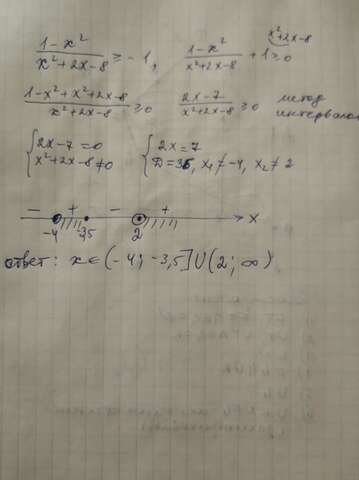 x²+2x-8
(1-x²)/(x²+2x-8) ≥ -1, (1-x²)/(x²+2x-8) + 1 ≥ 0
(1-x²+x²+2x-8)/(x²+2x-8) ≥ 0 (2x-7)/(x²+2x-8) ≥ 0 метод интервалов
{2x-7=0 {2x=7
{x²+2x-8≠0 {D=36, x₁≠-4, x₂≠2
- + - + x
-4 -3,5 2
ответ: x∈(-4; -3,5]∪(2; ∞)